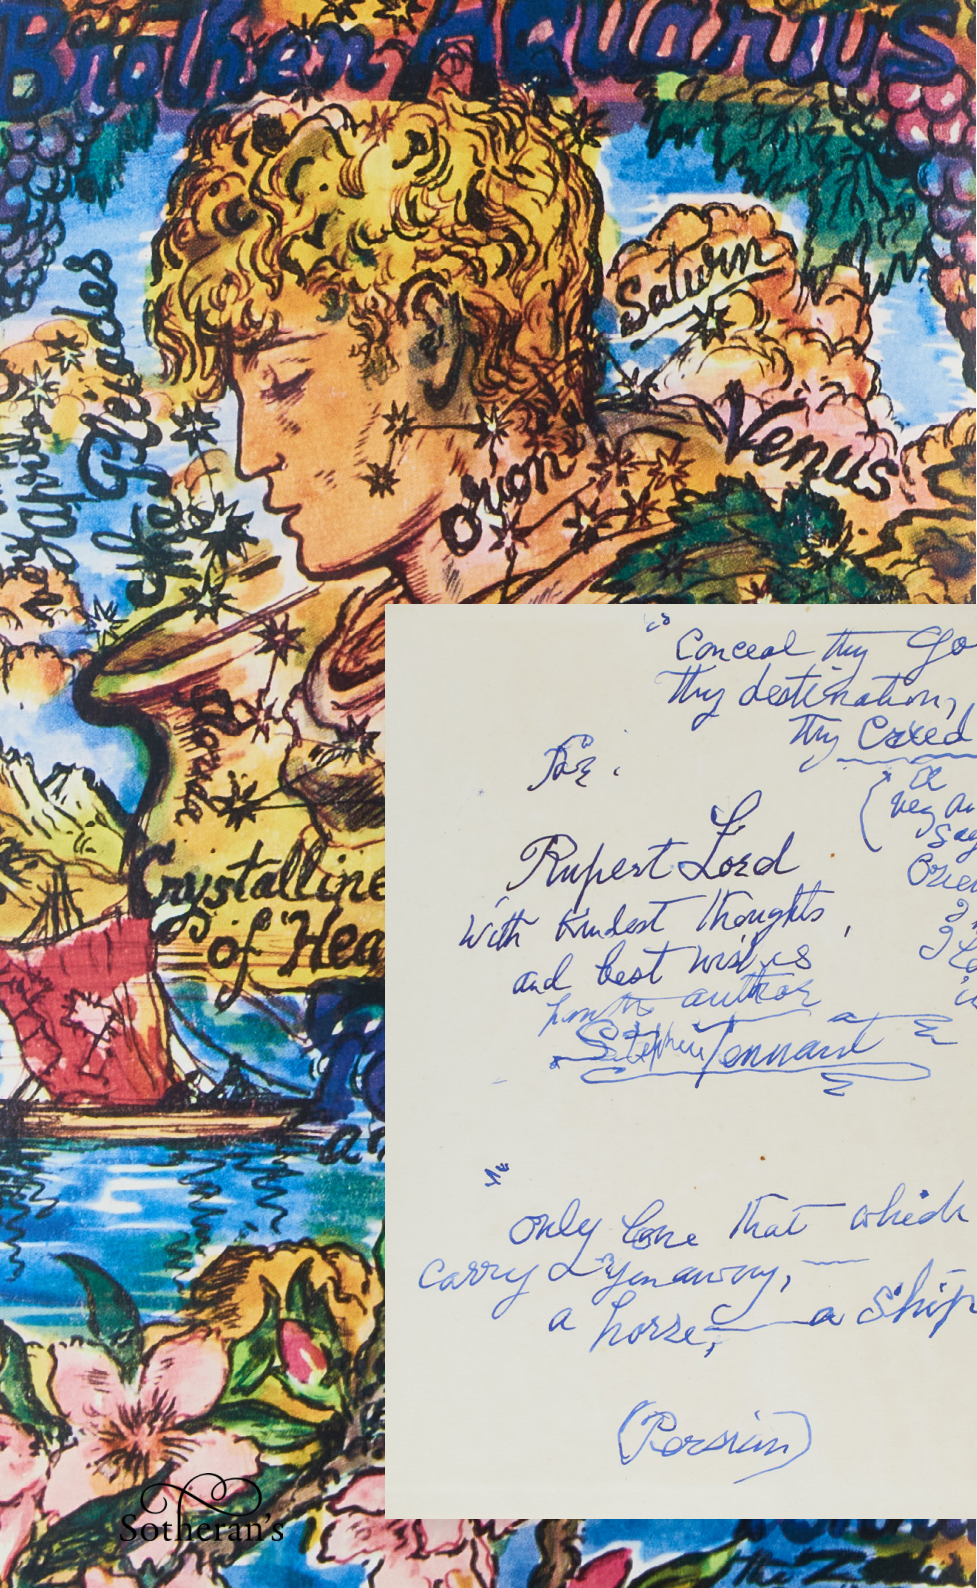 Broken Aquarius
Saturn
Venus
the Pleiades
Orion
Crystalline
of Hea
"Conceal thy Go
thy destination,
thy Creed
For:
a
Rupert Lord
With kindest thoughts,
and best wishes
from the author
Stephen Tennant
"
only love that which
carry you away,
a horse, — a ship
(Persian)
Sotheran's
the Z